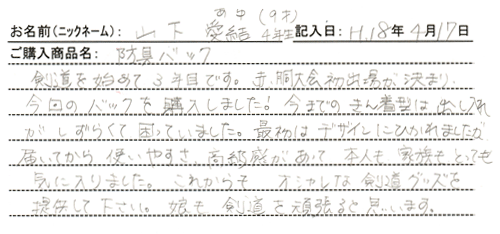 あゆ(9才)
お名前(ニックネーム): 山下 愛結 4年生 記入日: H.18年 4月17日
ご購入商品名: 防具バック
剣道を始めて3年目です。赤胴大会初出場が決まり、
今回のバックを購入しました! 今までのきん着型は出し入れ
がしずらくて困っていました。最初はデザインにひかれましたが
届いてから、使いやすさ、高級感があって 本人も家族もとっても
気に入りました。これからも オシャレな剣道グッズを
提供して下さい。娘も剣道を頑張ると思います。